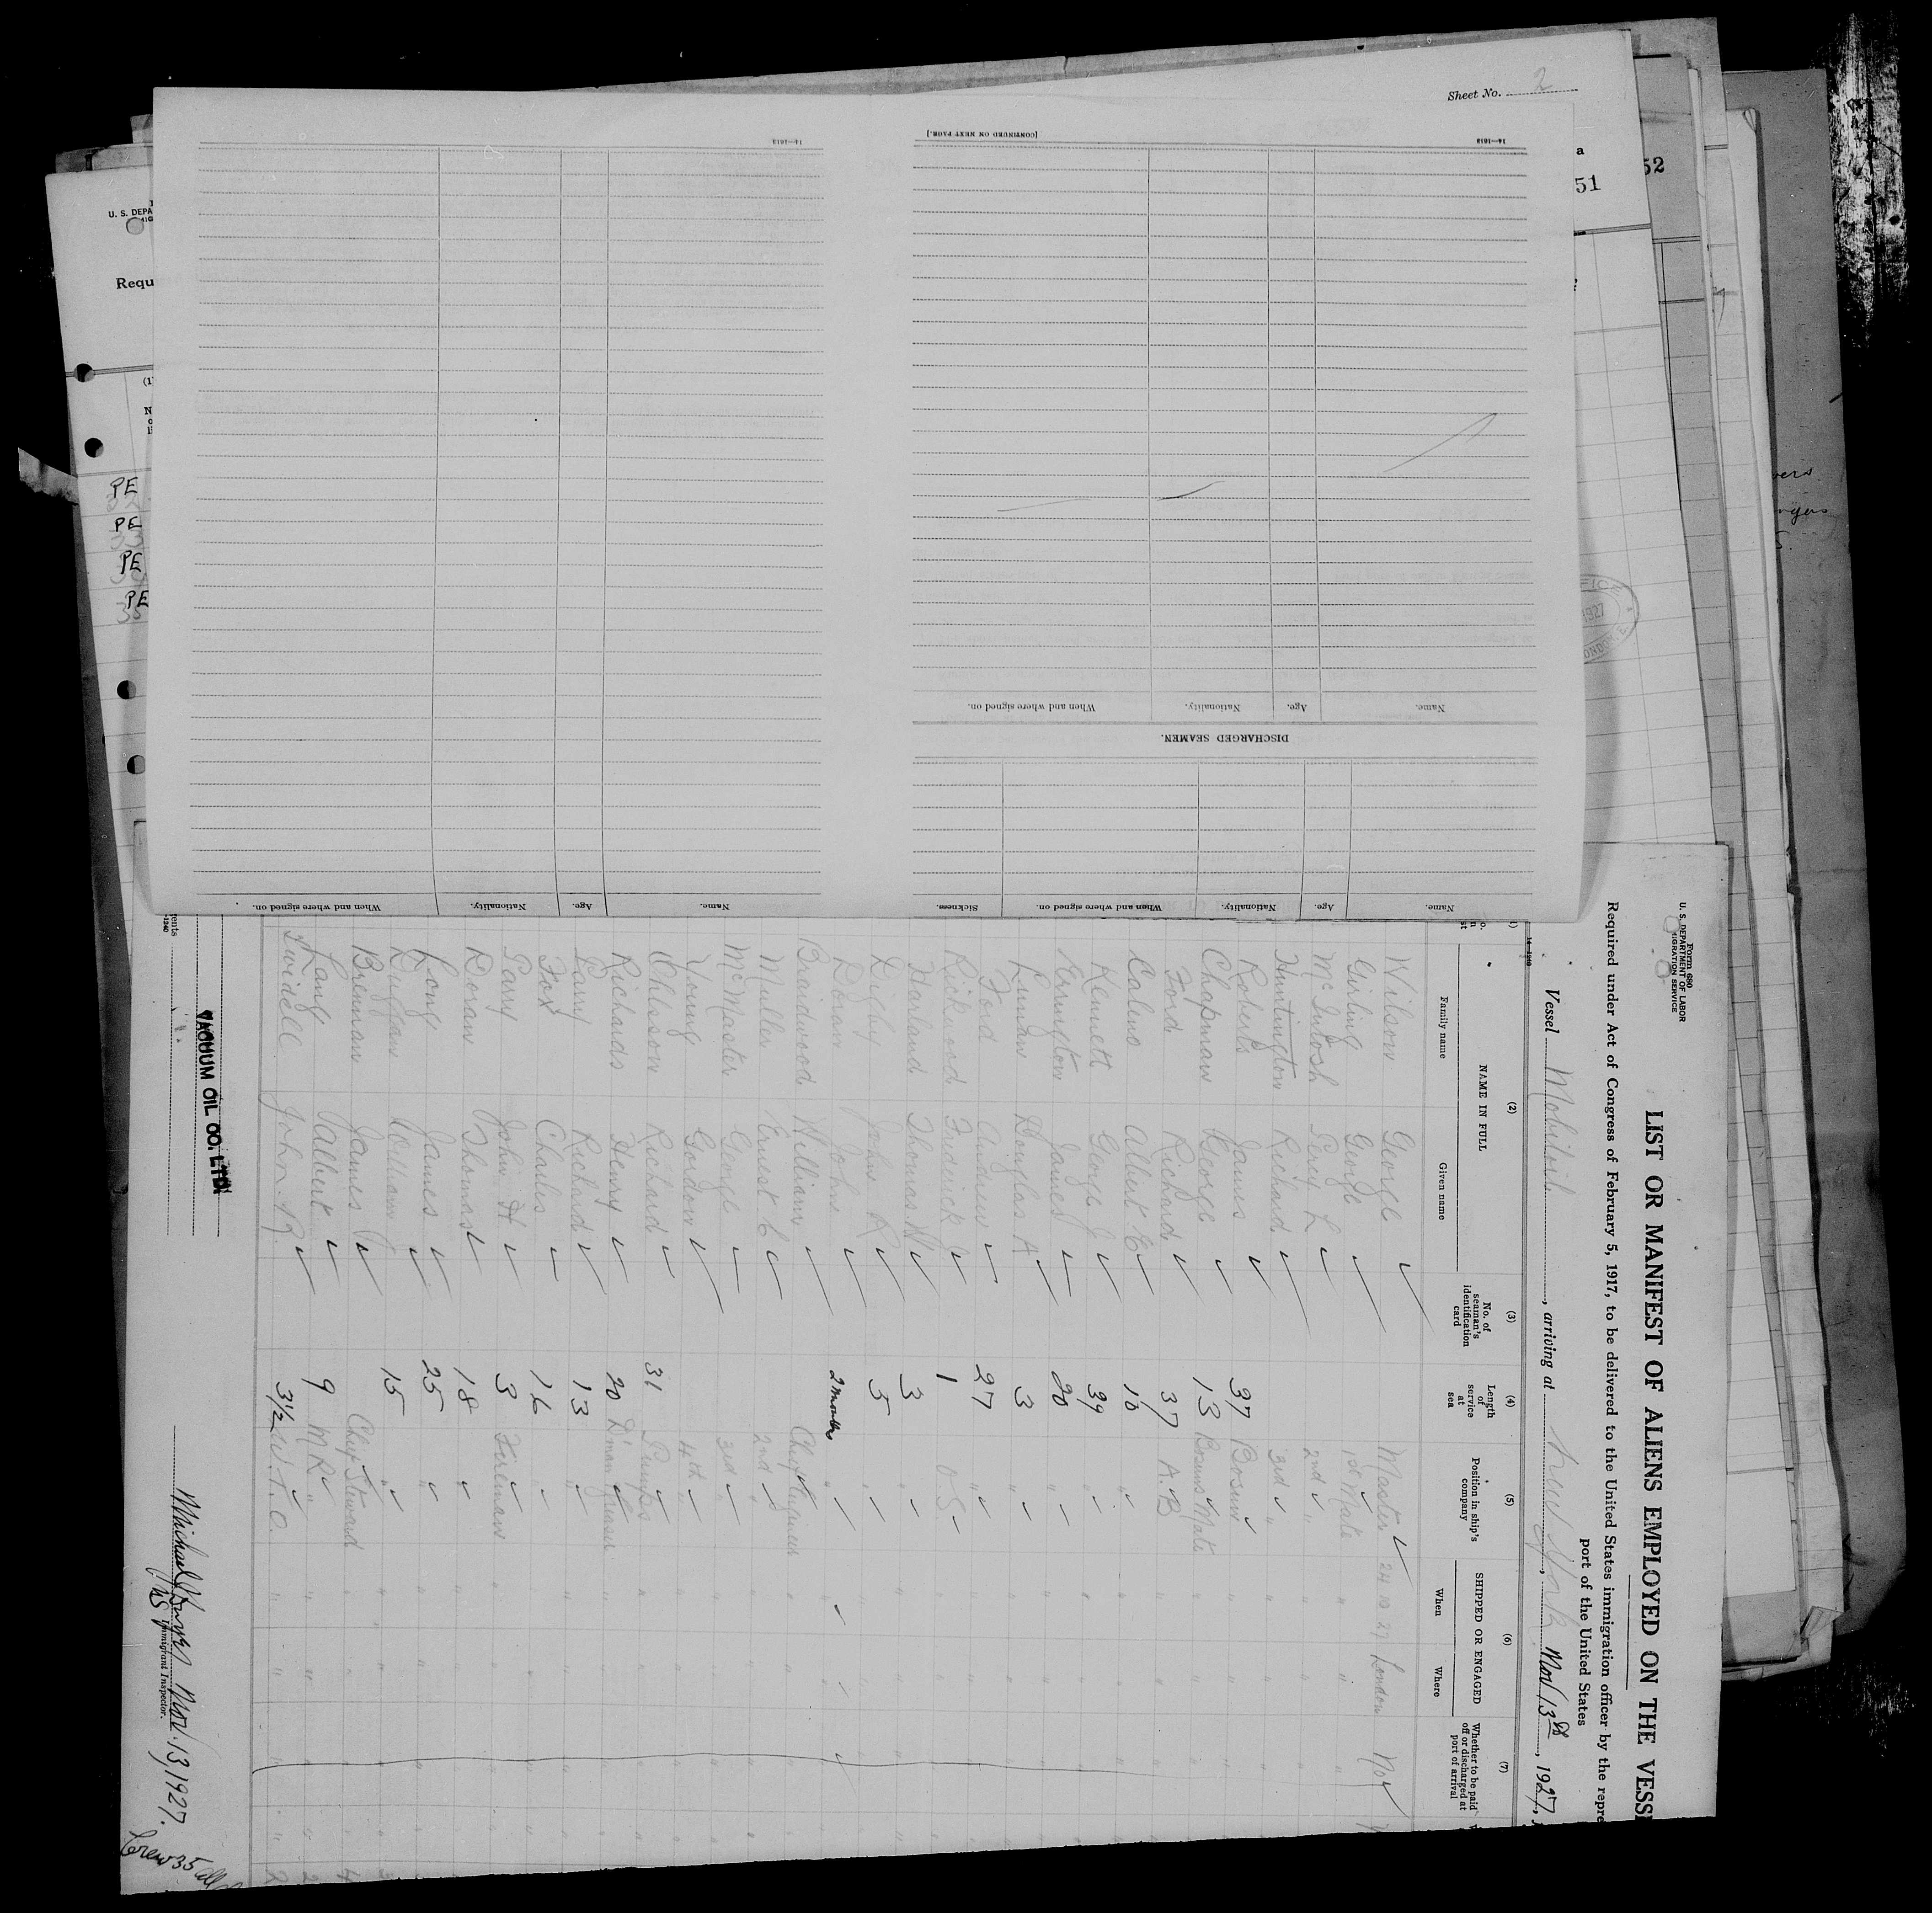 Sheet No. 2
[CONTINUED ON NEXT PAGE.]
14—1613
14—1613
Name. Age. Nationality. When and where signed on.
DISCHARGED SEAMEN.
Name. Age. Nationality. When and where signed on. Sickness.
Name. Age. Nationality. When and where signed on.
a
51
52
U. S. DEPA
Requ
(1)
PE
PE
PE
PE
1927
Form 680
U. S. DEPARTMENT OF LABOR
IMMIGRATION SERVICE
LIST OR MANIFEST OF ALIENS EMPLOYED ON THE VESS
Required under Act of Congress of February 5, 1917, to be delivered to the United States immigration officer by the repre
port of the United States
Vessel Mobiloil, arriving at New York, Nov 13th, 1927,
(2) (3) (4) (5) (6) (7)
NAME IN FULL
Family name Given name
No. of seaman's identification card
Length of service at sea
Position in ship's company
SHIPPED OR ENGAGED
When Where
Whether to be paid off or discharged at port of arrival
Wilson George Master 24 10 27 London No
Girling George 1st Mate " "
McIntosh Percy L 2nd " " "
Huntington Richard 3rd " " "
Roberts James 37 Bosun " "
Chapman George 13 Bosuns Mate " "
Ford Richard 37 A.B " "
Calino Albert E 10 " " "
Kennett George J 39 " " "
Kernington James 20 " " "
Luman Douglas A 3 " " "
Ford Andrew 27 " " "
Rickwood Fredrick 1 O.S " "
Hound Thomas W 3 " " "
Duddy John R 5 " " "
Doran John 2 months " " "
Brandwood William Chief Engineer " "
Muller Ernest C 2nd " " "
McMaster George 3rd " " "
Young Gordon 4th " " "
Ohlsson Richard 31 Pumps " "
Richards Henry 20 D'man Greaser " "
Parry Richard 13 " " "
Fox Charles 16 " " "
Parry John H 3 Fireman " "
Doran Thomas 18 " " "
Long James 25 " " "
Duggan William 15 " " "
Brennan James Chief Steward " "
Lang Albert 9 M.R. " "
Swidell John R. 3½ W.T.O. " "
VACUUM OIL CO. LTD.
Michael Nov. 13, 1927.
Immigrant Inspector.
Crew 35 all